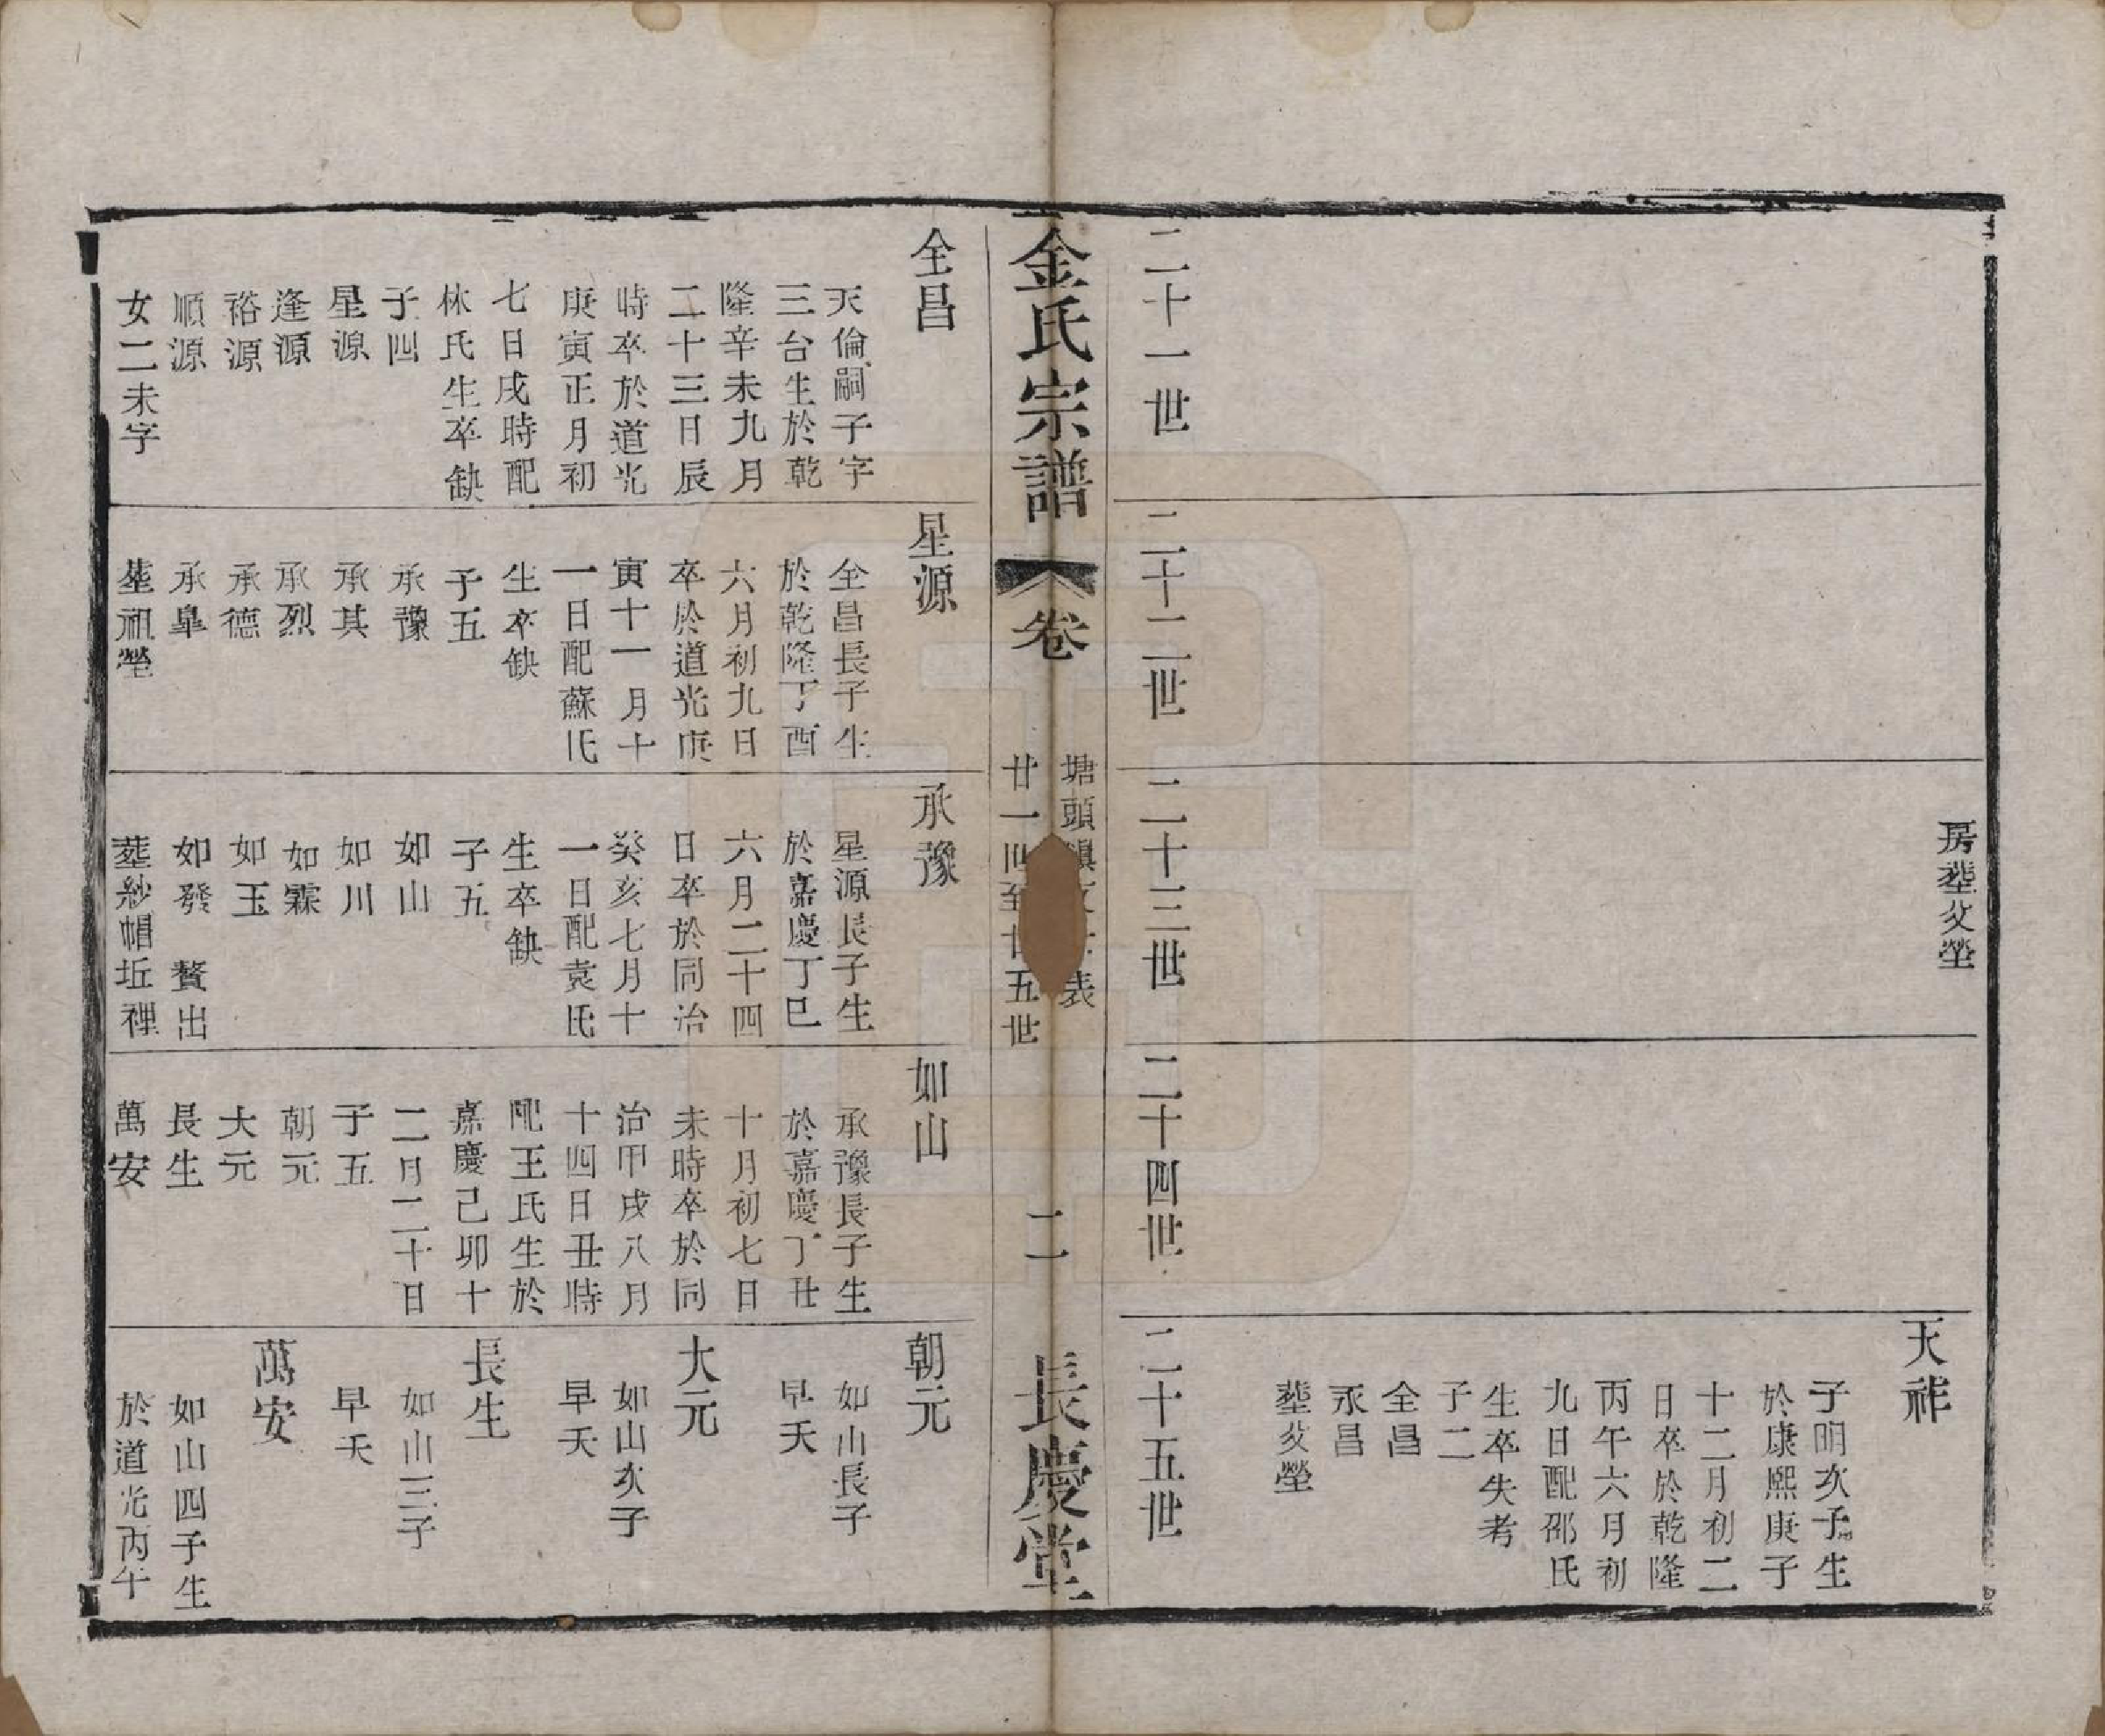 房塟父塋
天祚
子明次子生
於康熙庚子
十二月初二
日卒於乾隆
丙午六月初
九日配邵氏
生卒失考
子二
全昌
永昌
塟父塋
二十一世
二十二世
二十三世
二十四世
二十五世
金氏宗譜
卷
塘頭鎮 表
廿一 至 五世
二
長慶堂
全昌
天倫嗣子字
三台生於乾
隆辛未九月
二十三日辰
時卒於道光
庚寅正月初
七日戌時配
林氏生卒缺
子四
星源
逢源
裕源
順源
女二未字
星源
全昌長子生
於乾隆丁酉
六月初九日
卒於道光庚
寅十一月十
一日配蘇氏
生卒缺
子五
承豫
承其
承烈
承德
承皐
塟祖塋
承豫
星源長子生
於嘉慶丁巳
六月二十四
日卒於同治
癸亥七月十
一日配袁氏
生卒缺
子五
如山
如川
如霖
如玉
如發 贅出
塟紗帽坵裡
如山
承豫長子生
於嘉慶丁丑
十月初七日
未時卒於同
治甲戌八月
十四日丑時
配王氏生於
嘉慶己卯十
二月二十日
子五
朝元
大元
長生
萬安
朝元
如山長子
早夭
大元
如山次子
早夭
長生
如山三子
早夭
萬安
如山四子生
於道光丙午